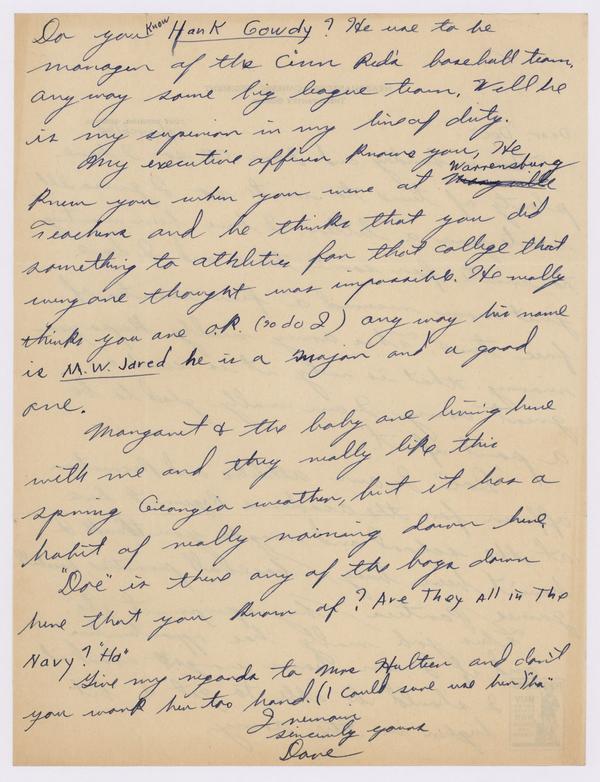 Do you know Hank Gowdy? He use to be
manager of the Cinn Reds baseball team,
anyway some big league team. Well he
is my superior in my line of duty.
My executive officer knows you, He
knew you when you were at Warrensburg
Teachers and he thinks that you did
something to athletics for that college that
everyone thought was impossible. He really
thinks you are o.k. (so do I) any way his name
is M.W. Jared he is a major and a good
one.
Margaret & the baby are living here
with me and they really like this
spring Georgia weather, but it has a
habit of really raining down here.
"Doc" is there any of the boys down
here that you know of? Are They All in The
Navy? "Ha"
Give my regards to Mrs Hulteen and don't
you work her too hard. (I could sure use her) "ha"
I remain
sincerely yours
Dave